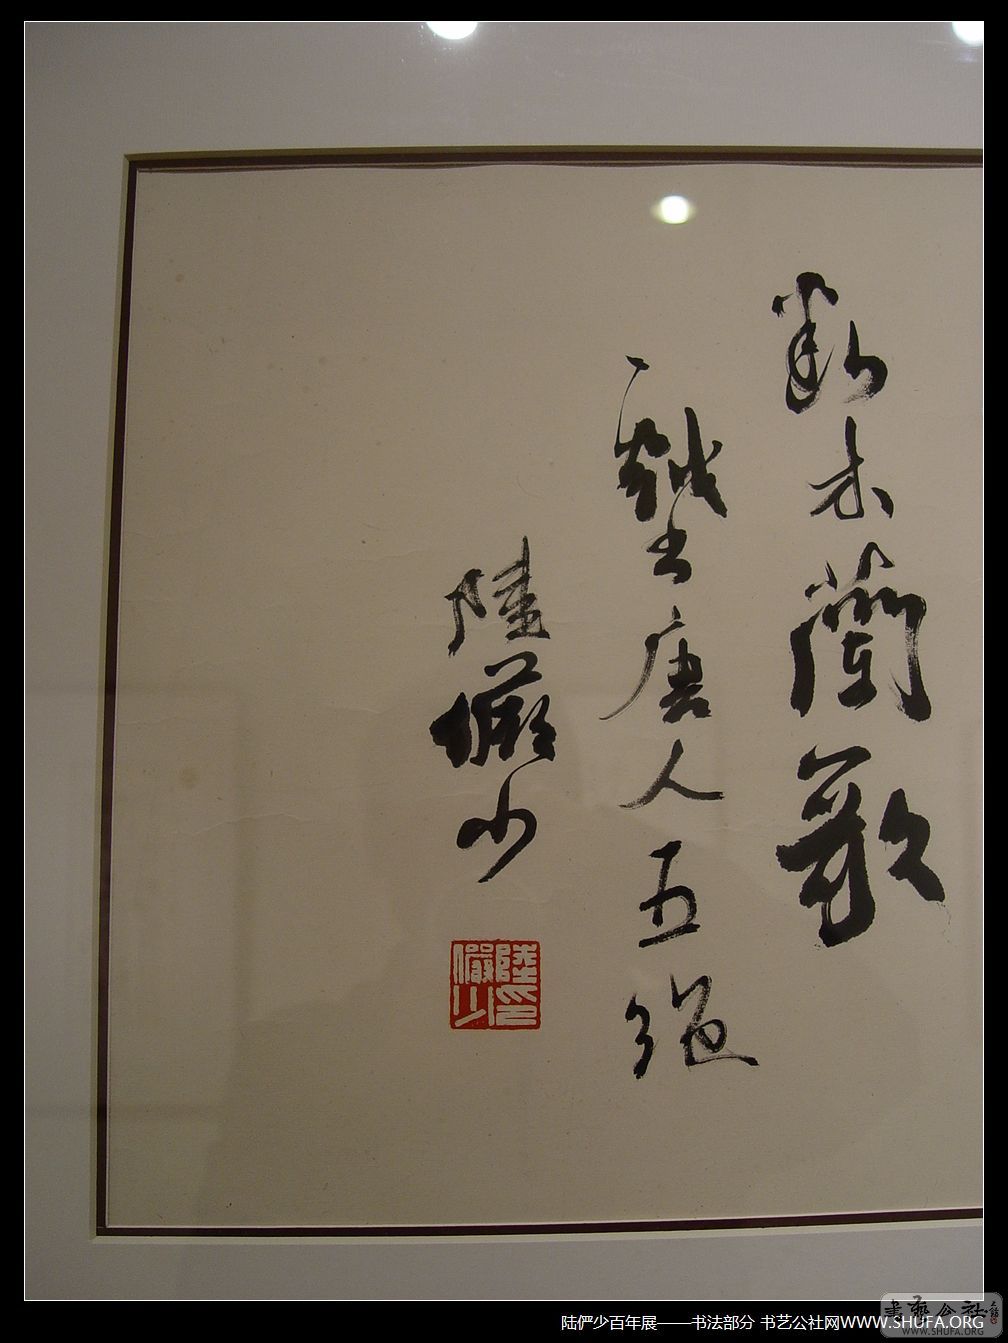 木蘭歌
唐人五絕
陸儼少
陸印
儼少
陆俨少百年展——书法部分 书艺公社网WWW.SHUFA.ORG
書藝公社
WWW.SHUFA.ORG